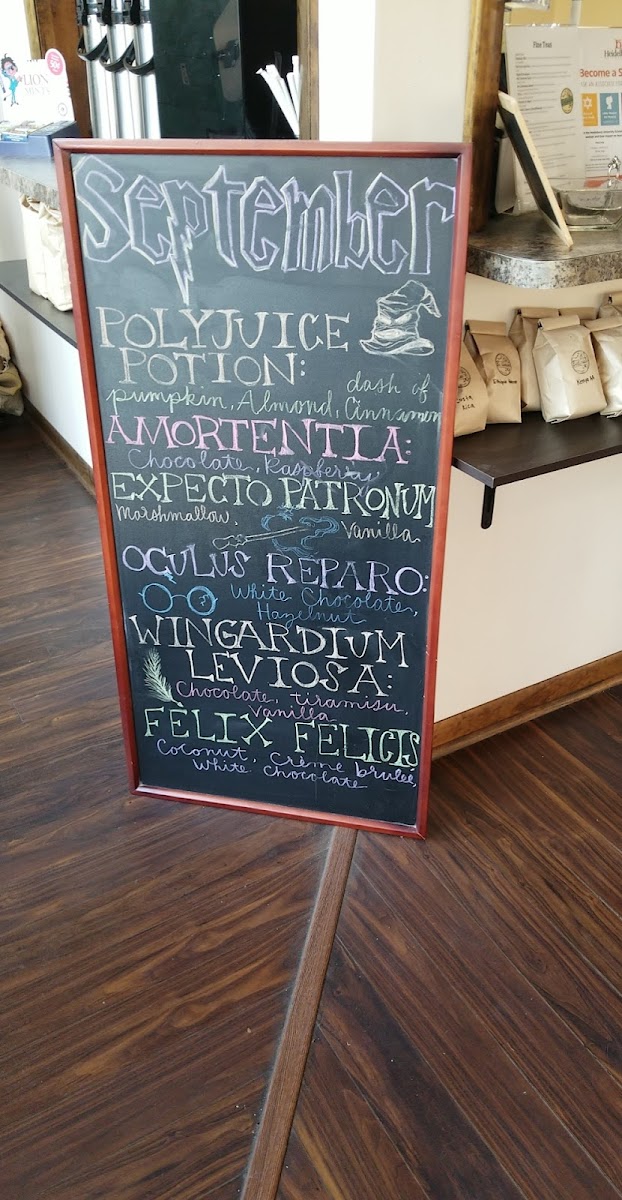 September
POLYJUICE
POTION:
dash of
pumpkin, Almond, Cinnamon
AMORTENTIA:
Chocolate, Raspberry
EXPECTO PATRONUM
Marshmallow,
Vanilla
OCULUS REPARO:
White Chocolate,
Hazelnut
WINGARDIUM
LEVIOSA:
Chocolate, tiramisu,
Vanilla
FELIX FELICIS
Coconut, Crème brulee,
White Chocolate
LION
MINTS
Become a S